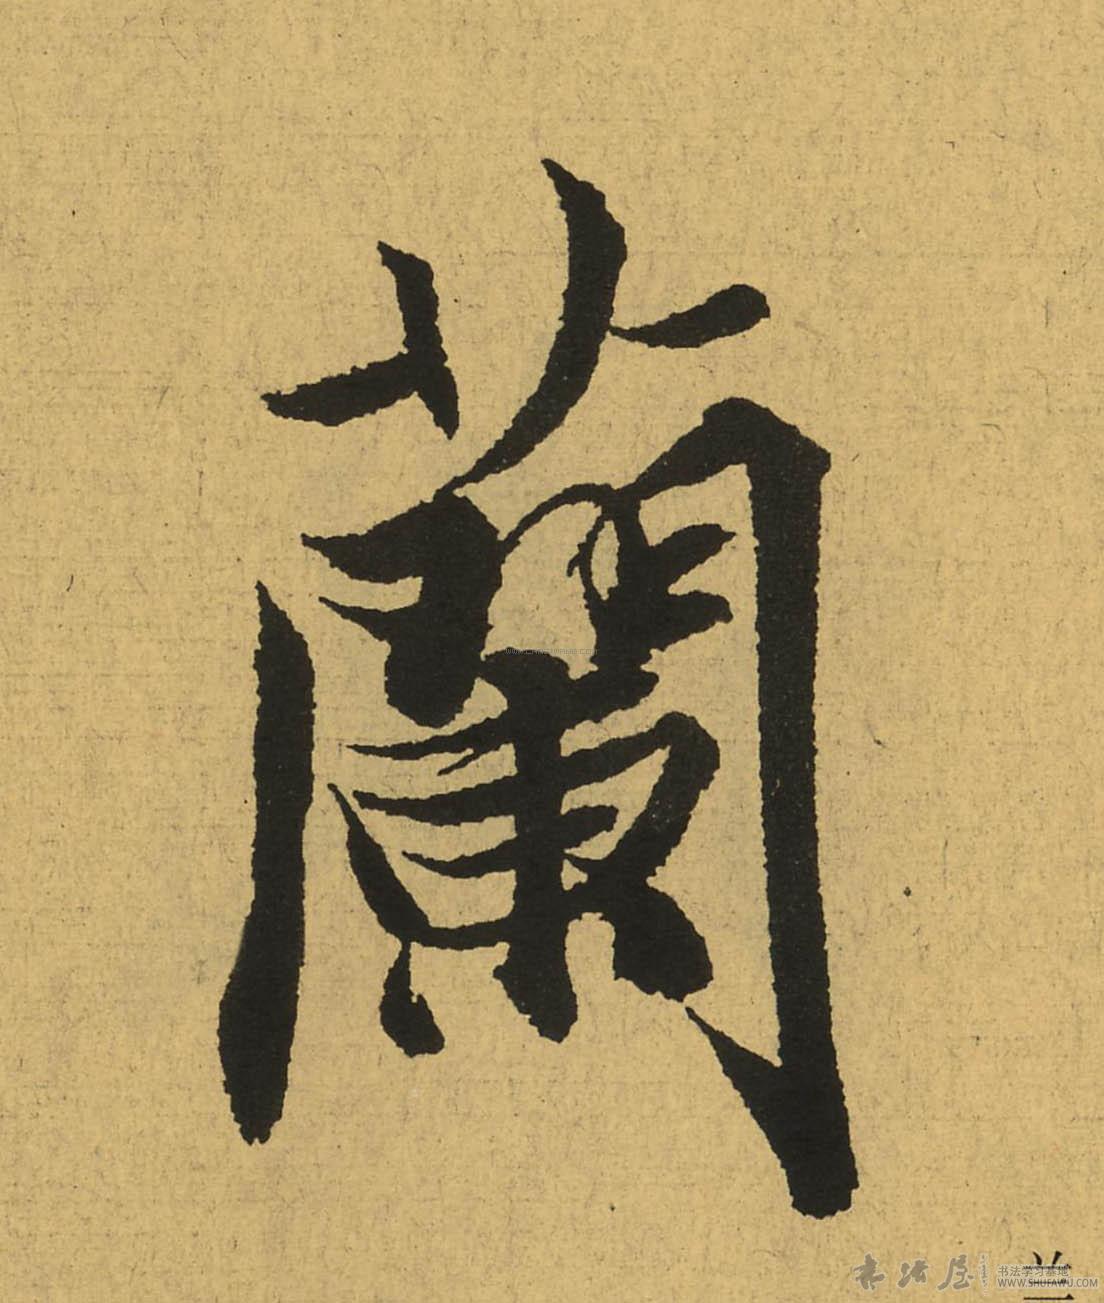 蘭
书法屋
书法学习基地
WWW.SHUFAWU.COM
兰